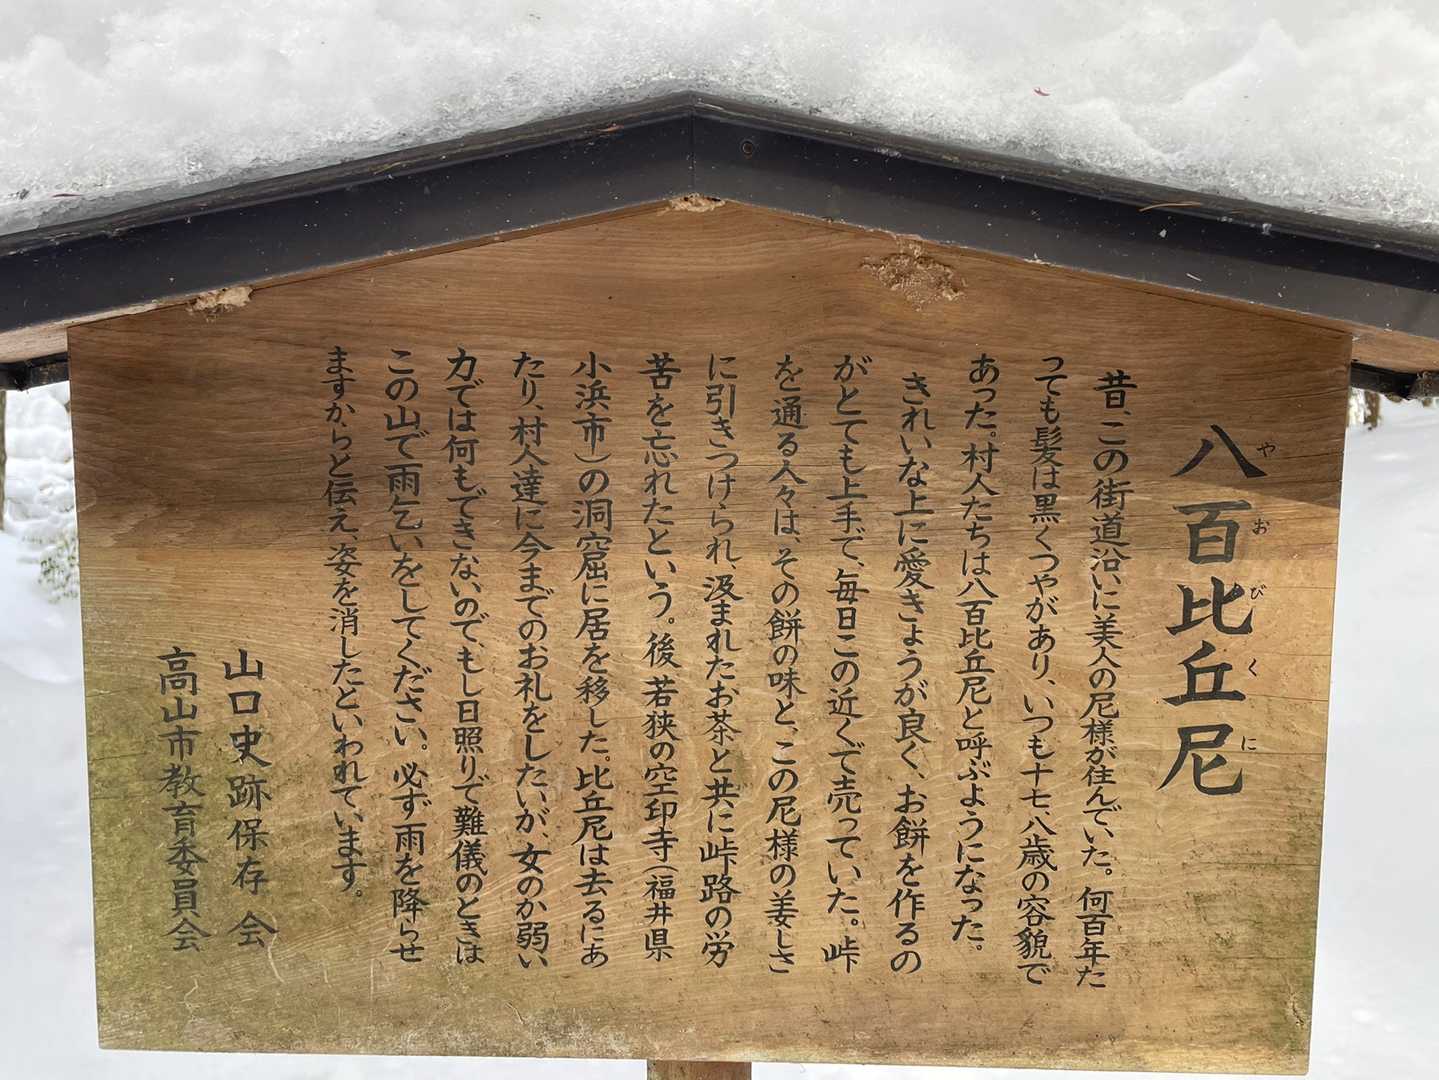 八百比丘尼
やおびくに
昔、この街道沿いに美人の尼様が住んでいた。何百年た
っても髪は黒くつやがあり、いつも十七、八歳の容貌で
あった。村人たちは八百比丘尼と呼ぶようになった。
きれいな上に愛きょうが良く、お餅を作るの
がとても上手で、毎日この近くで売っていた。峠
を通る人々は、その餅の味と、この尼様の美しさ
に引きつけられ、汲まれたお茶と共に峠路の労
苦を忘れたという。後若狭の空印寺（福井県
小浜市）の洞窟に居を移した。比丘尼は去るにあ
たり、村人達に今までのお礼をしたいが、女のか弱い
力では何もできないので、もし日照りで難儀のときは
この山で雨乞いをしてください。必ず雨を降らせ
ますからと伝え、姿を消したといわれています。
山口史跡保存会
高山市教育委員会